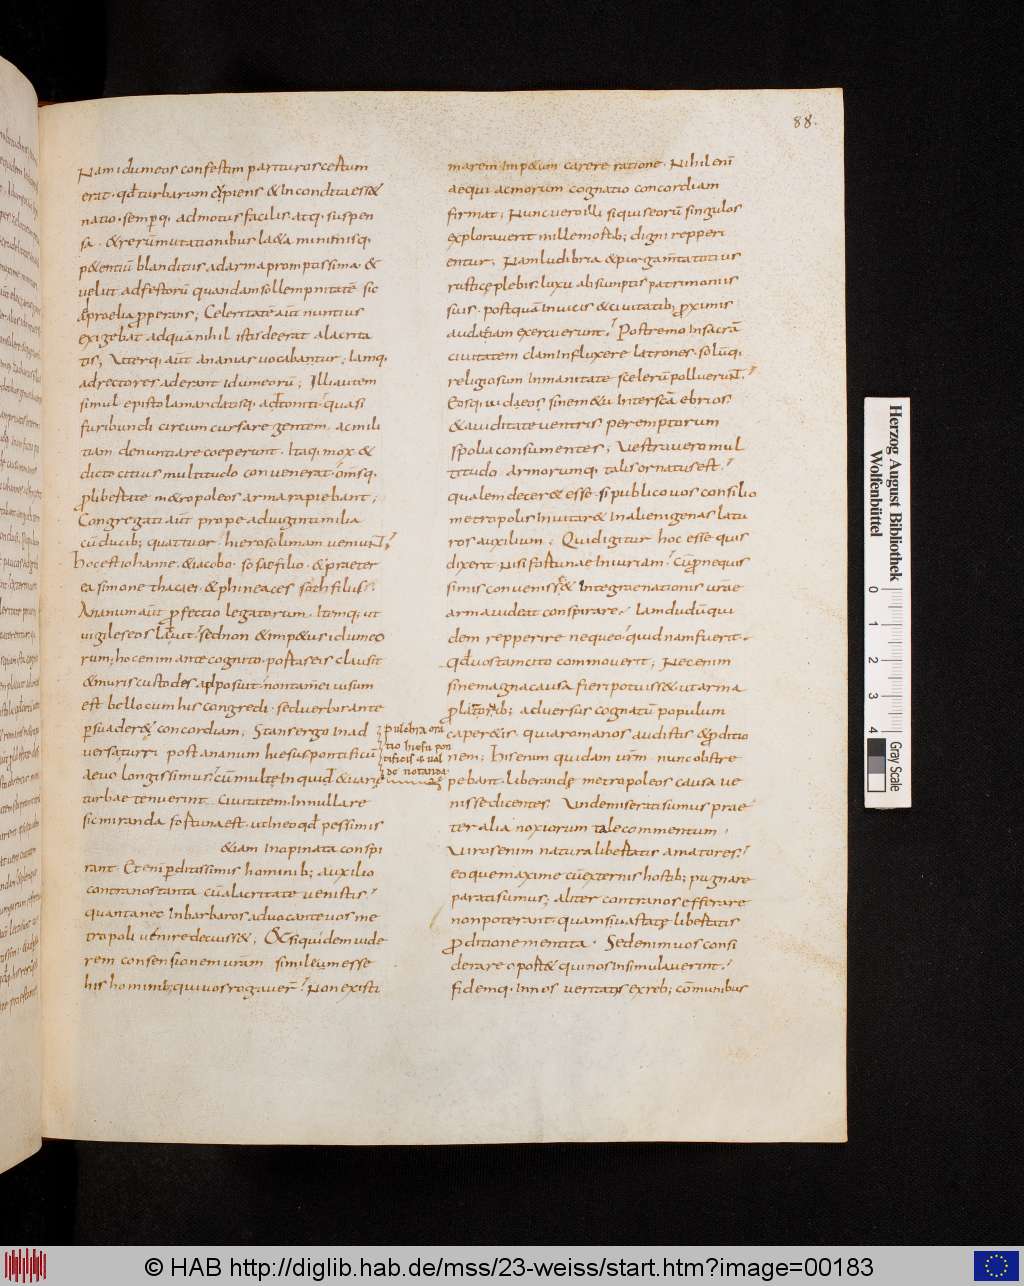 88.
Nam idumeos confestim parituros certum
erat · qđ turbarum cupiens & incondita ess&
natio · semꝑq; ad motus facilis atq; suspen
sa · & rerū mutationibus la&a minimisq;
p&entiū blanditiis ad arma promptissima · &
velut ad festorū quandam sollempnitatē sic
ad proelia ꝓperans; Celeritate aūt nuntius
exigebat ad quā nihil istis deerat alacrita
tis; Uterq; aūt ananias vocabantur; Iamq;
ad rectores aderant idumeorū; Illi autem
simul epistola mandatisq; adtoniti quasi
furibundi circum cursare gentem · ac mili
tiam denuntiare coeperunt · Itaq; mox &
dicto citius multitudo convenerat · om̄sq;
ꝓ libertate m&ropoleos arma rapiebant;
Congregati aūt prope ad viginti milia
cū ducib; quattuor · hierosolimam veniunt;
Hoc est iohanne · & iacobo · sosae filio · & praeter
ea simone thaciei · & phineaces · sothi filius;
Ananum aūt ꝓfectio legatorum · Itemq; ut
vigiles eos latuit · sed non & imp&us idumeo
rum; hoc enim ante cognito · portas eis clausit
& muris custodes adposuit · non tam̄ ei visum
est bello cum his congredi · sed verbo · ante
ꝑsuader& concordiam; Stans ergo in ad
versa turri post ananum hiesus pontificū
aevo longissimus; cū multę inquid & varię
turbae tenuerint civitatem · In nulla re
sic miranda fortuna est · ut in eo qđ pessimis
&iam inopinata conspi
rant · Etenī ꝑditissimis hominib; auxilio
contra nos tanta cū alacritate venistis;
quanta nec in barbaros advocante vos me
tropoli venire decuiss&; Et si quidem vide
rem consensionem vr̄am similē um esse
his hominib; qui vos rogaver̄; Non existi
pulchra ora
tio hiesu pon
tificis & val
de notanda
marem imp&um carere ratione · Nihil enī
aequi ac morum cognatio concordiam
firmat; Nunc vero illi siquis eorū singulos
exploraverit mille mortib; digni repperi
entur; Nam ludibria & purgam̄ta totius
rusticę plebis luxu absumptis patrimoniis
suis · postquā in vicis & civitatib; ꝓximis
audaciam exercuerunt; Postremo in sacrā
civitatem clam influxere latrones · solūq;
religiosum inmanitate scelerū polluerunt;
Eosq; videos sine metu inter scā ebrios
& aviditate ventris peremptorum
spolia consumentes; Vestra vero mul
titudo armorumq; talis ornatus est;
qualem decer& esse · si publico vos consilio
metropolis invitar& in alienigenas latu
ros auxilium; Quid igitur hoc esse quis
dixerit nisi fortunae iniuriam; Cū ꝓ nequis
simis conveniss& & integrae nationis vr̄ae
arma videat conspirare; Iam dudū qui
dem repperire nequeo quidnam fuerit ·
qđ vos tam cito commoverit; Nec enim
sine magna causa fieri potuiss& ut arma
ꝓ latronib; adversus cognatū populum
caper&is · qui a romanos audistis & ꝓditio
nem; his enim quidam vr̄m nunc obstre
pebant · liberandę metropoleos causa ve
nisse dicentes · Unde miserati sumus prae
ter alia noxiorum tale commentum;
Viros enim natura libertatis amatores;
eoque maxime cū externis hostib; pugnare
paratissimus; aliter contra nos efferare
non poterant · quam si vastatę libertatis
ꝓditione mentita · Sed enim vos consi
derare oport& qui nos insimulaverint;
fidemq; in nos veritatis ex reb; com̄unibus
Herzog August Bibliothek
Wolfenbüttel
0 1 2 3 4
Gray Scale
© HAB http://diglib.hab.de/mss/23-weiss/start.htm?image=00183